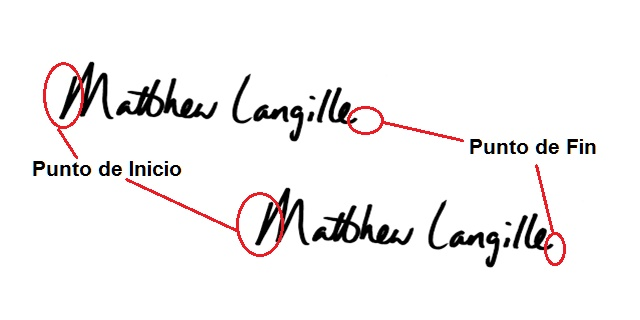 Matthew Langille
Punto de Fin
Punto de Inicio
Matthew Langille